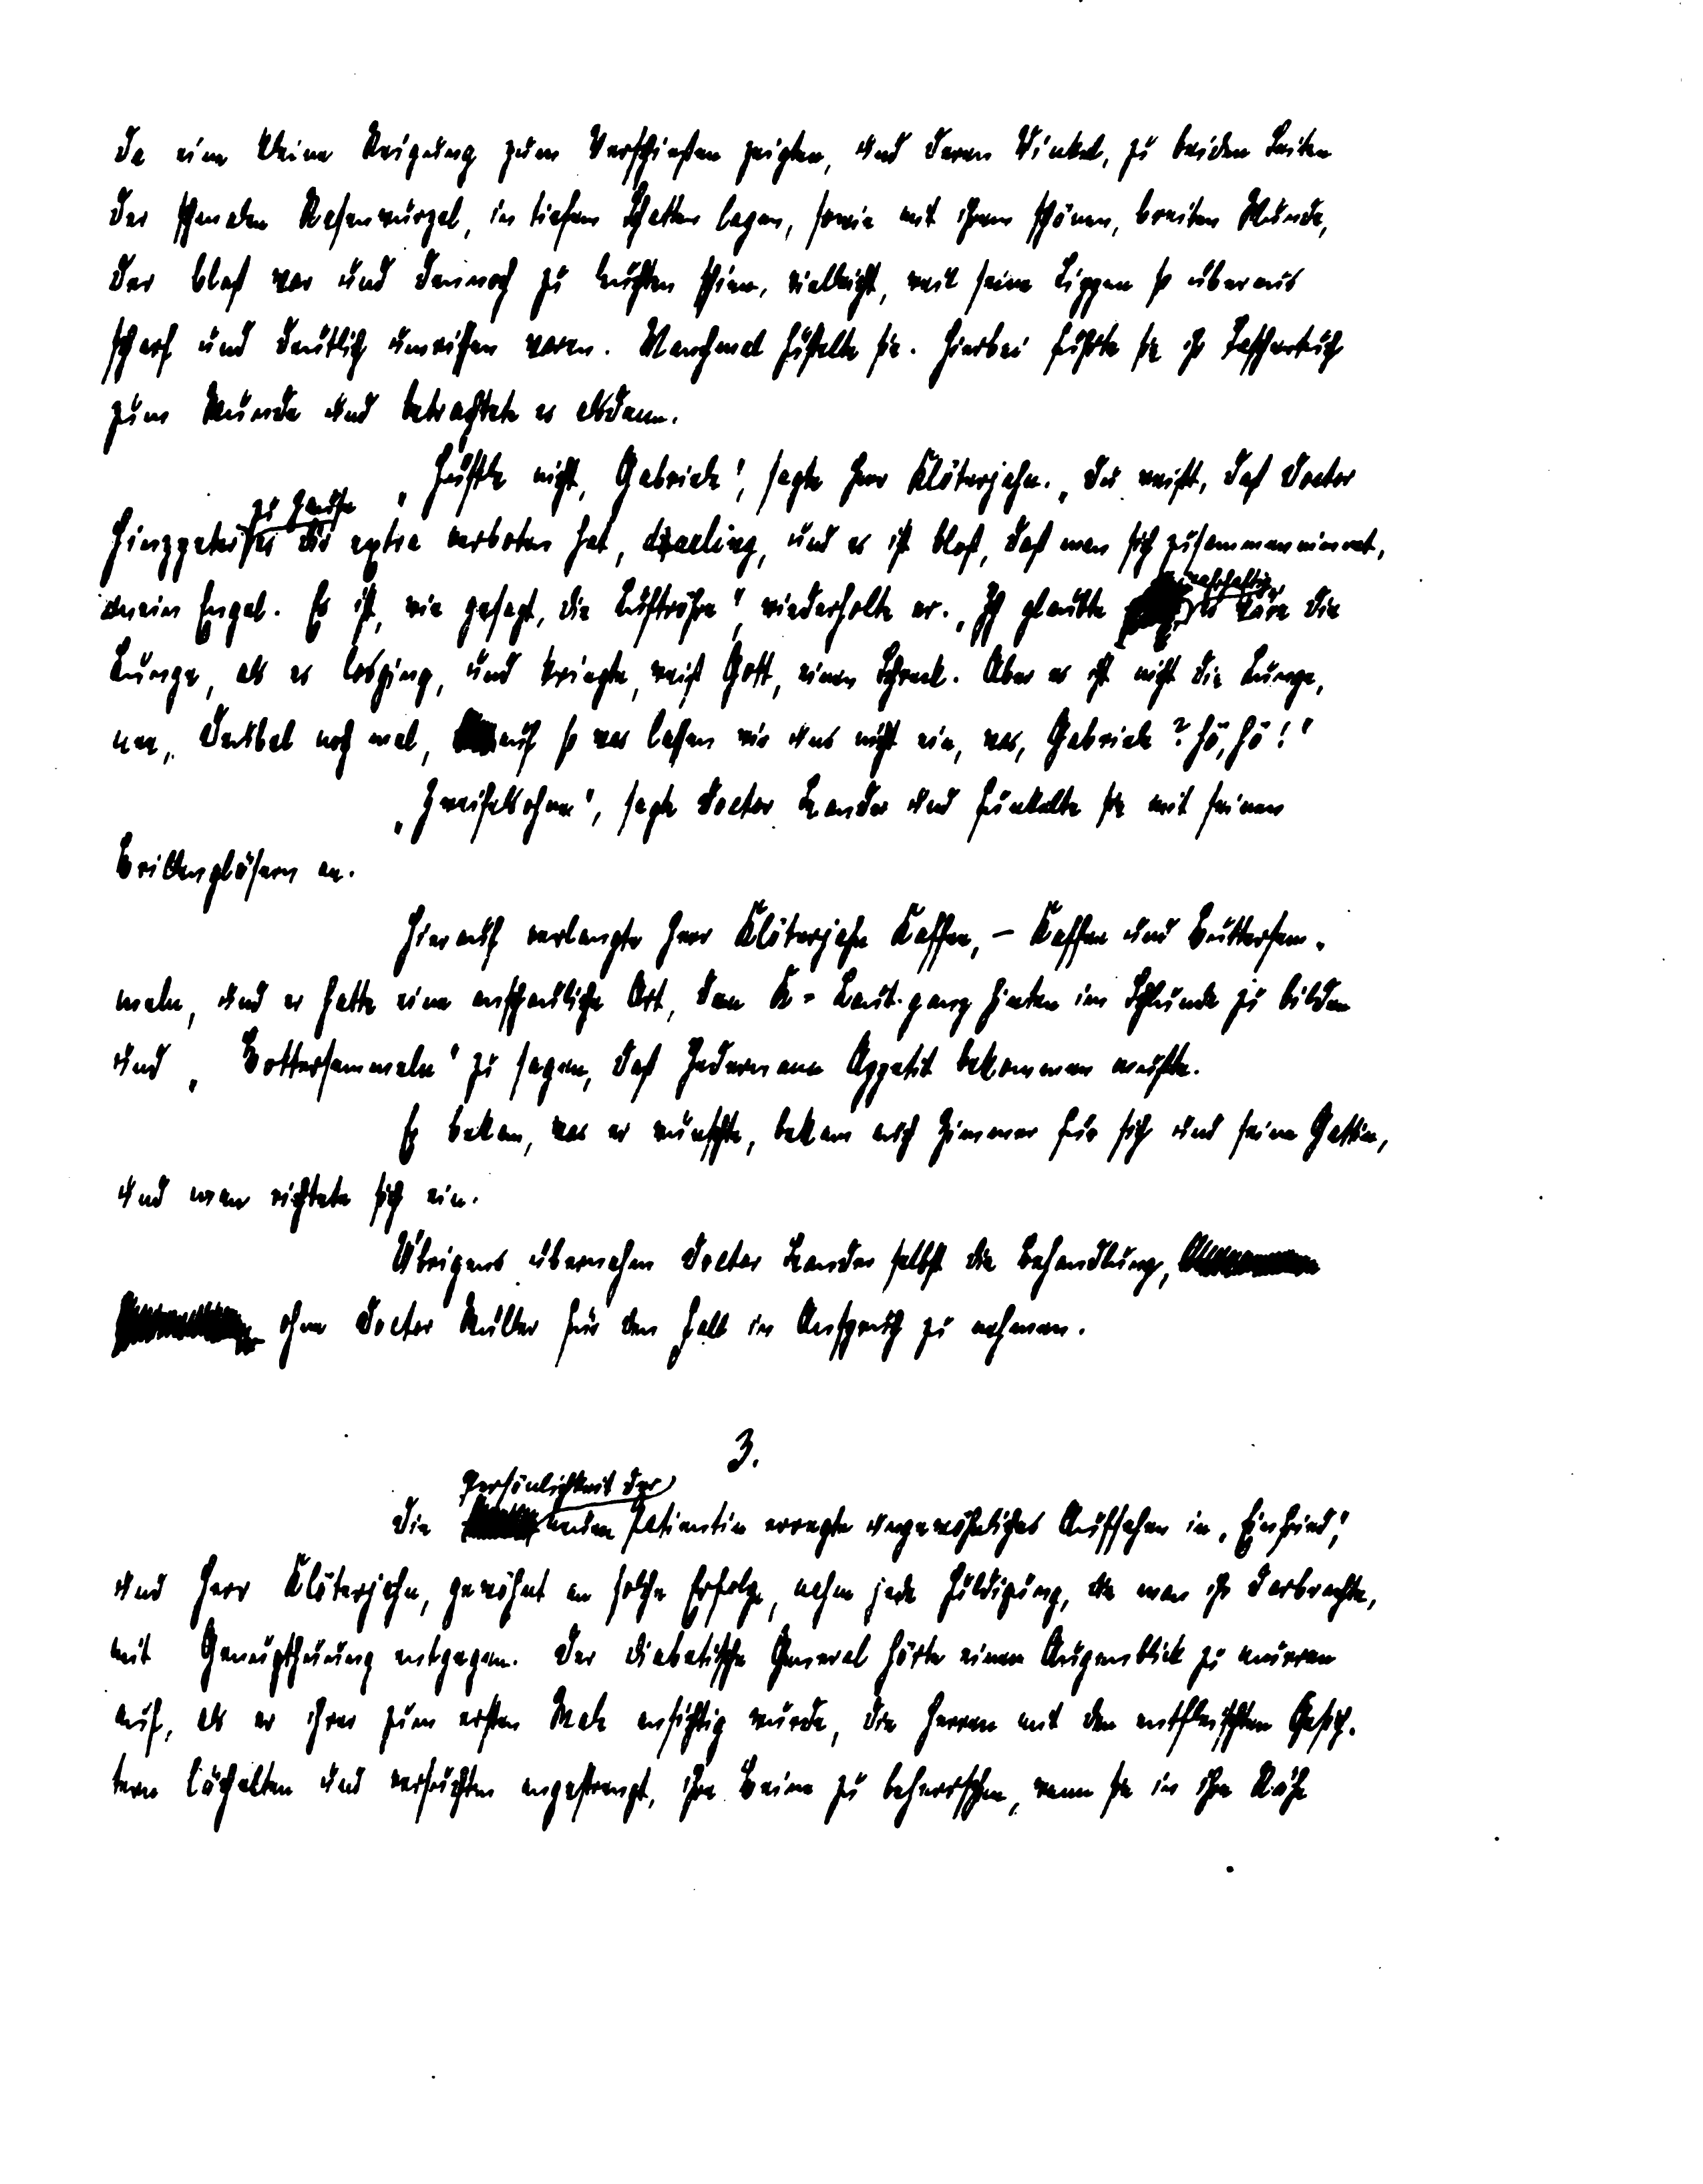 da eine kleine Neigung zum Verschießen zeigten, und deren Winkel, zu beiden Seiten
der schmalen Nasenwurzel, in tiefem Schatten lagen, sowie mit ihrem schönen, breiten Munde,
der blaß war und dennoch zu leuchten schien, vielleicht, weil seine Lippen so überaus
scharf und deutlich umrissen waren. Manchmal hüstelte sie. Hierbei führte sie ihr Taschentuch
zum Munde und betrachtete es alsdann.
„Hüstle nicht, Gabriele“, sagte Herr Klöterjahn. „Du weißt, daß Doctor
Hinzpeter es dir zu Hause extra verboten hat, darling, und es ist bloß, daß man sich zusammennimmt,
mein Engel. Es ist, wie gesagt, die Luftröhre“, wiederholte er. „Ich glaubte wahrhaftig, es wäre die
Lunge, als es losging, und kriegte, weiß Gott, einen Schreck. Aber es ist nicht die Lunge,
nee, Deubel noch mal, auf so was lassen wir uns nicht ein, was, Gabriele? hö, hö!“
„Zweifelsohne“, sagte Doctor Leander und funkelte sie mit seinen
Brillengläsern an.
Hierauf verlangte Herr Klöterjahn Kaffee, – Kaffee und Buttersem-
meln, und er hatte eine anschauliche Art, den K-Laut ganz hinten im Schlunde zu bilden
und „Bottersemmeln“ zu sagen, daß Jedermann Appetit bekommen mußte.
Er bekam, was er wünschte, bekam auch Zimmer für sich und seine Gattin,
und man richtete sich ein.
Übrigens übernahm Doctor Leander selbst die Behandlung,
ohne Doctor Müller für den Fall in Anspruch zu nehmen.
3.
Die Persönlichkeit der neuen Patientin erregte ungewöhnliches Aufsehen in „Einfried“,
und Herr Klöterjahn, gewöhnt an solche Erfolge, nahm jede Huldigung, die man ihr darbrachte,
mit Genugthuung entgegen. Der diabetische General hörte einen Augenblick zu murren
auf, als er ihrer zum ersten Male ansichtig wurde, die Herren mit den entfleischten Gesich-
tern lächelten und versuchten angestrengt, ihre Beine zu beherrschen, wenn sie in ihre Nähe